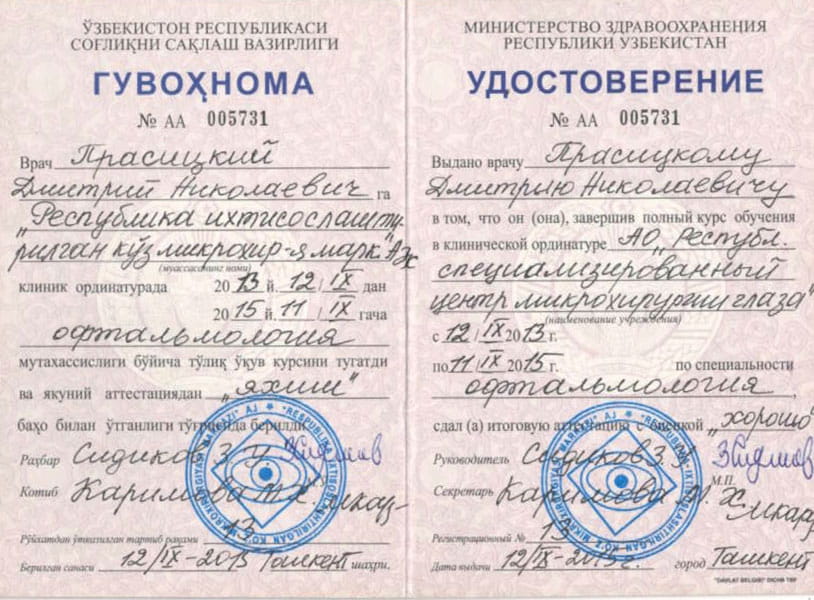 ЎЗБЕКИСТОН РЕСПУБЛИКАСИ
СОҒЛИҚНИ САҚЛАШ ВАЗИРЛИГИ
ГУВОҲНОМА
№ АА 005731
Врач Прасицкий
Дмитрий Николаевич га
"Республика ихтисослашти-
рилган кўз микрохир-я марк" АЖ
(муассасанинг номи)
клиник ординатурада 2013 й. 12/IX дан
2015 й. 11/IX гача
офтальмология
мутахассислиги бўйича тўлиқ ўқув курсини тугатди
ва якуний аттестациядан „яхши"
баҳо билан ўтганлиги тўғрисида берилди
Раҳбар Сидиков З. У.
Котиб Каримова М. Х.
Рўйхатдан ўтказилган тартиб рақами 13
Берилган санаси 12/IX-2015 Тошкент шаҳри.
МИНИСТЕРСТВО ЗДРАВООХРАНЕНИЯ
РЕСПУБЛИКИ УЗБЕКИСТАН
УДОСТОВЕРЕНИЕ
№ АА 005731
Выдано врачу Прасицкому
Дмитрию Николаевичу
в том, что он (она), завершив полный курс обучения
в клинической ординатуре АО „Республ.
специализированный
центр микрохирургии глаза"
(наименование учреждения)
с 12/IX 2013 г.
по 11/IX 2015 г. по специальности
офтальмология,
сдал (а) итоговую аттестацию с оценкой „хорошо"
Руководитель Сидиков З. У.
М.П.
Секретарь Каримова М. Х.
Регистрационный № 13
Дата выдачи 12/IX-2015г. город Ташкент
"DAVLAT BELGISI" DICHB ТЕГ